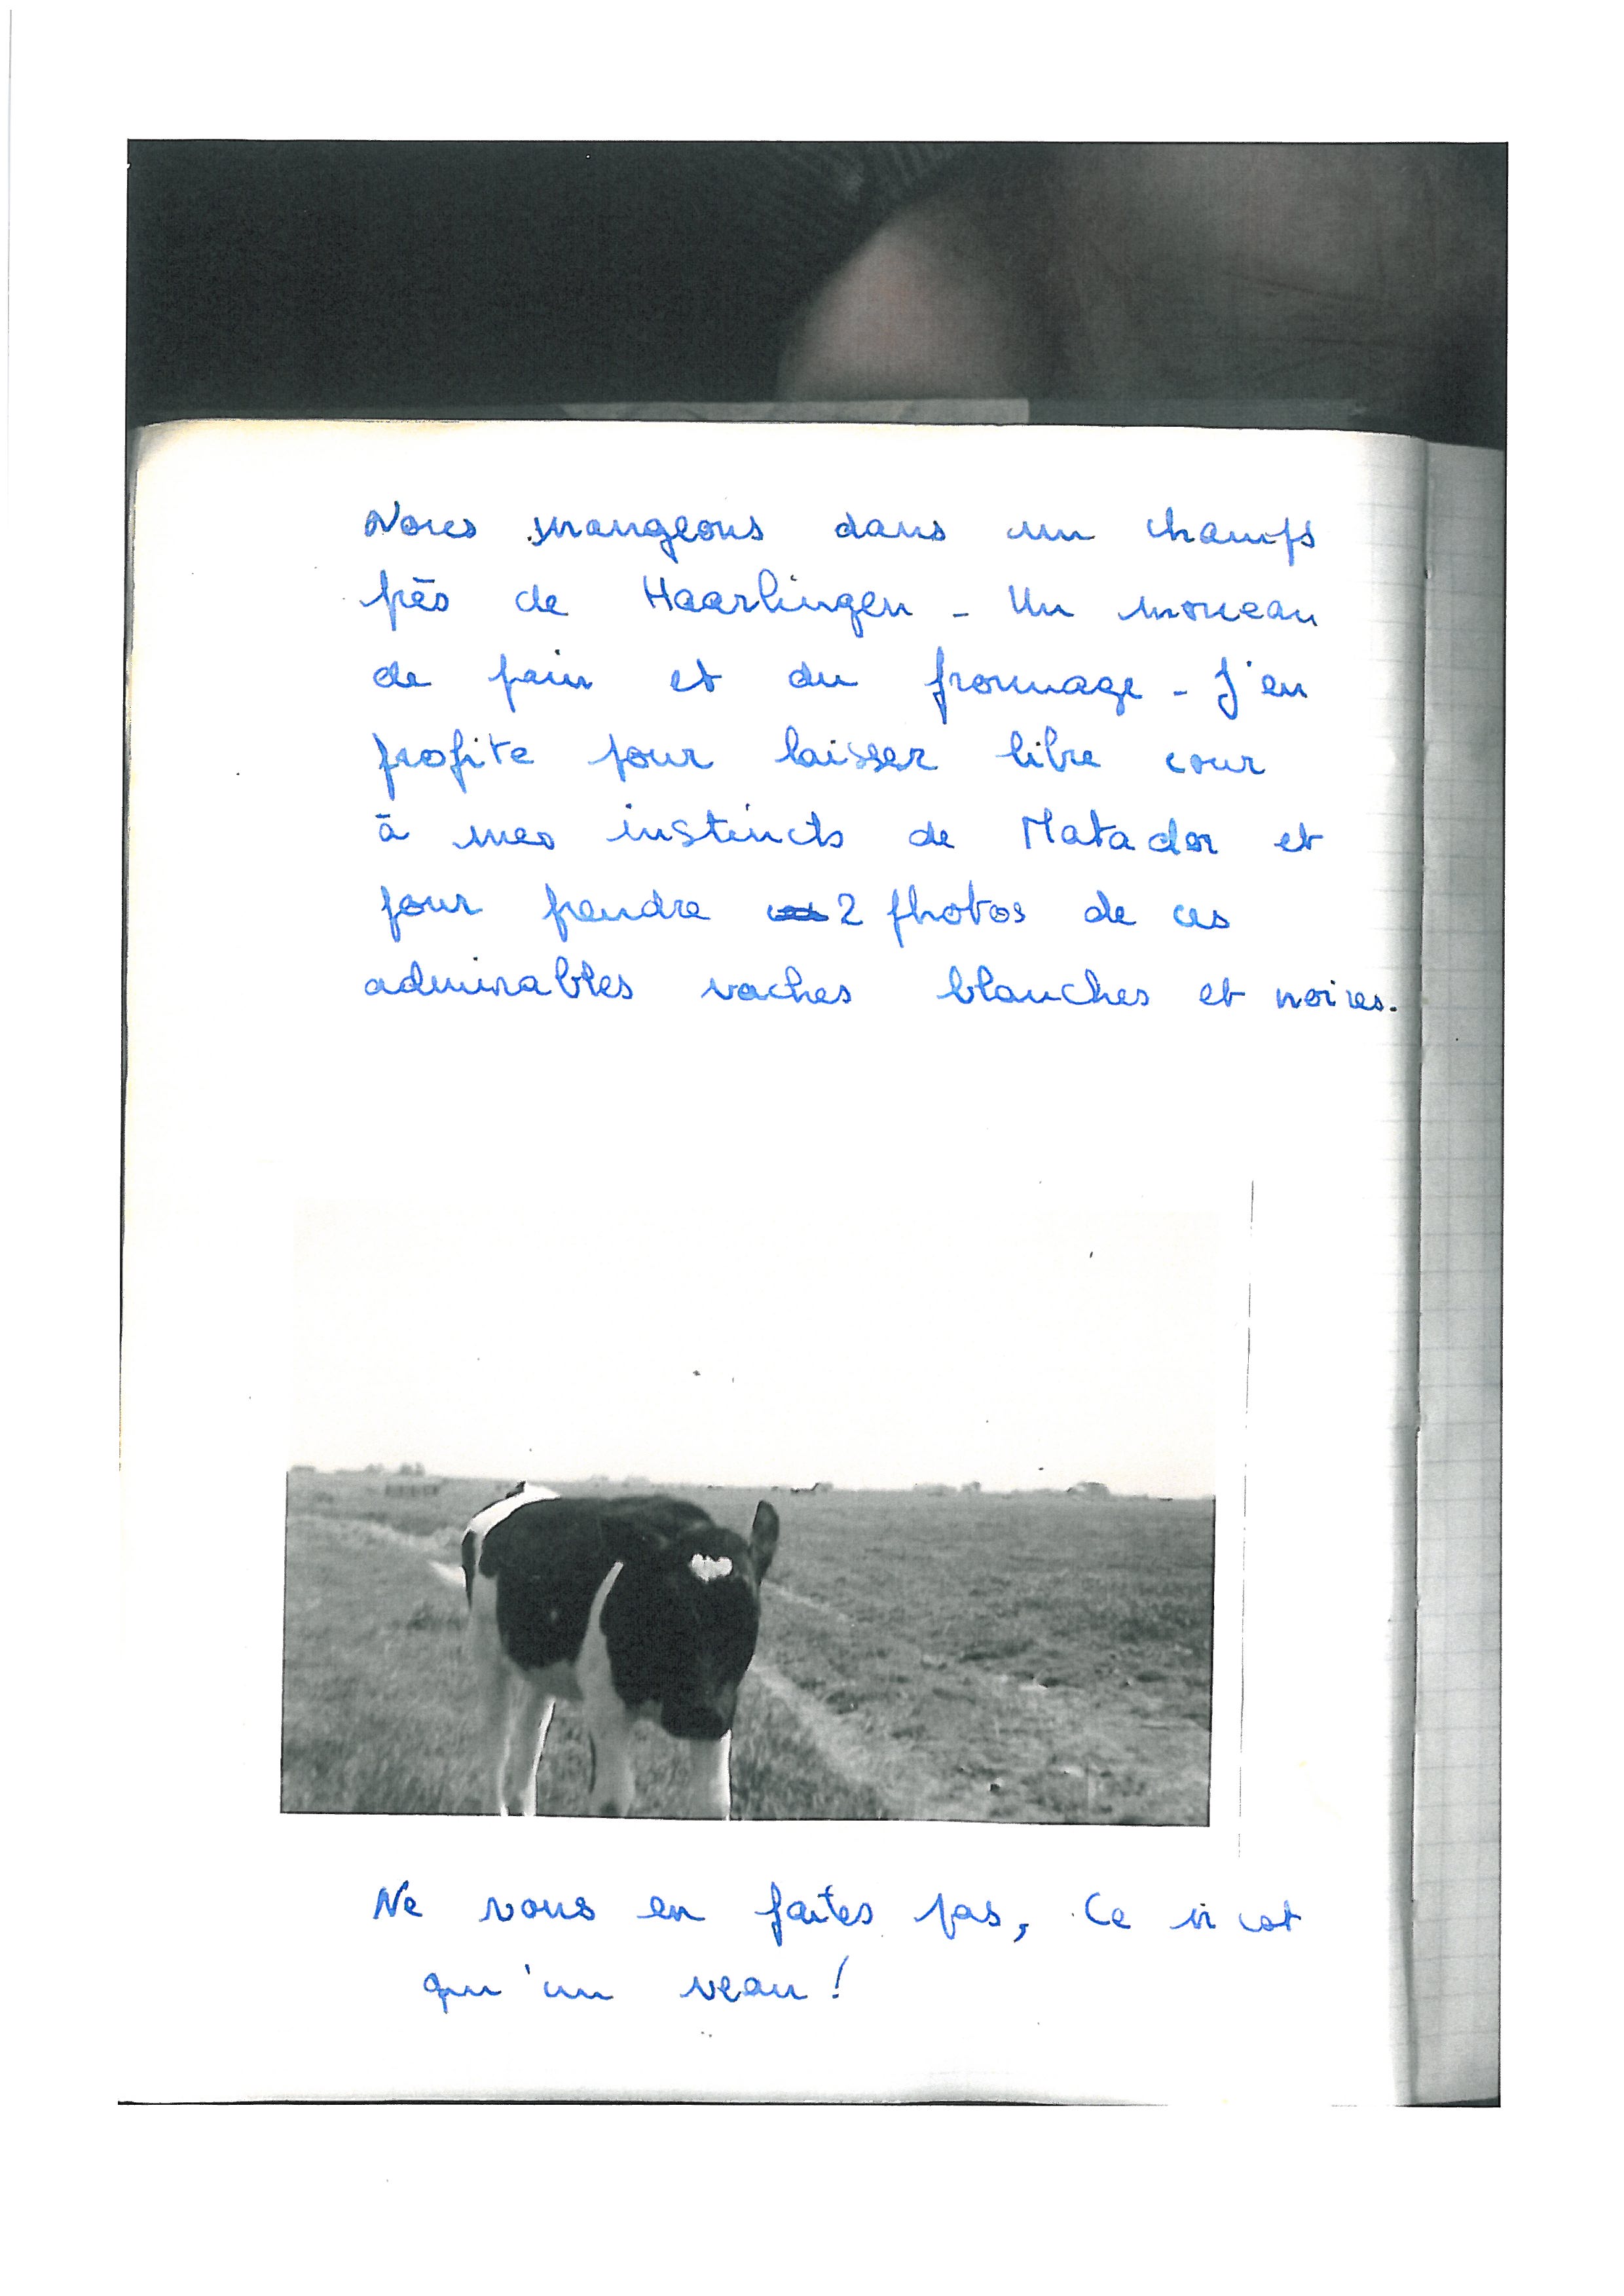 Nous mangeons dans un champs
près de Haarlingen - Un morceau
de pain et du fromage - J'en
profite pour laisser libre cour
à mes instincts de Matador et
pour prendre 2 photos de ces
admirables vaches blanches et noires.
Ne vous en faites pas, Ce n'est
qu'un veau !